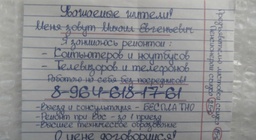 Уважаемые жители!
Меня зовут Михаил Евгеньевич
Я занимаюсь ремонтом:
- Компьютеров и ноутбуков
- Телевизоров и телефонов
Работаю на себя без посредников!
8-964-618-17-61
- Выезд и консультация - БЕСПЛАТНО
- Ремонт при Вас - за 1 приезд
- Высшее техническое образование
О цене договоримся!